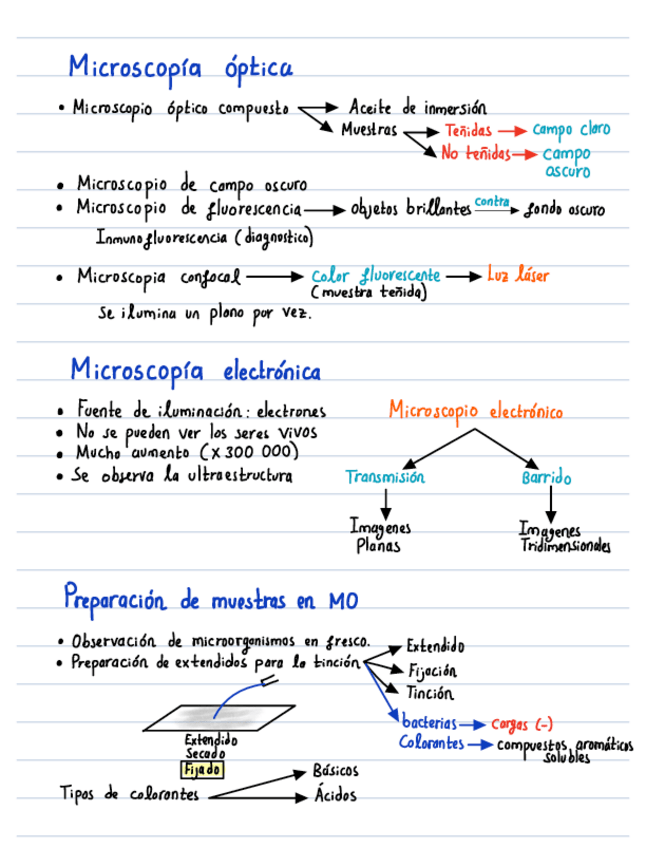 Microscopía óptica
• Microscopio óptico compuesto → Aceite de inmersión
→ Muestras → Teñidas → Campo claro
→ No teñidas → Campo
oscuro
• Microscopio de campo oscuro
• Microscopio de fluorescencia → objetos brillantes contra → fondo oscuro
Inmunofluorescencia (diagnostico)
• Microscopia confocal → Color fluorescente → Luz láser
(muestra teñida)
Se ilumina un plano por vez.
Microscopía electrónica
• Fuente de iluminación: electrones
• No se pueden ver los seres vivos
• Mucho aumento (x300 000)
• Se observa la ultraestructura
Microscopio electrónico
Transmisión
Barrido
Imagenes
Planas
Imagenes
Tridimensionales
Preparación de muestras en MO
• Observación de microorganismos en fresco.
• Preparación de extendidos para la tinción → Extendido
→ Fijación
→ Tinción
bacterias → Cargas (-)
Colorantes → compuestos aromáticos
solubles
Extendido
Secado
Fijado
Tipos de colorantes → Básicos
→ Ácidos